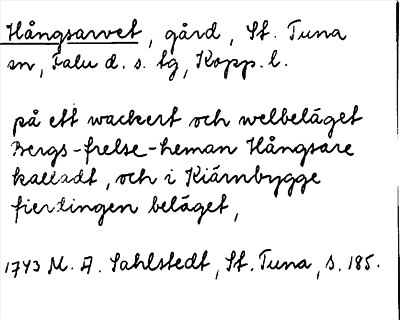 Hångsarvet, gård, St. Tuna
sn, Falu d. s. tg, Kopp. l.
på ett wackert och welbeläget
Bergs-frelse-heman Hångsare
kalladt, och i Kiärnbygge
fierdingen beläget,
1743 M. A. Sahlstedt, St. Tuna, s. 185.